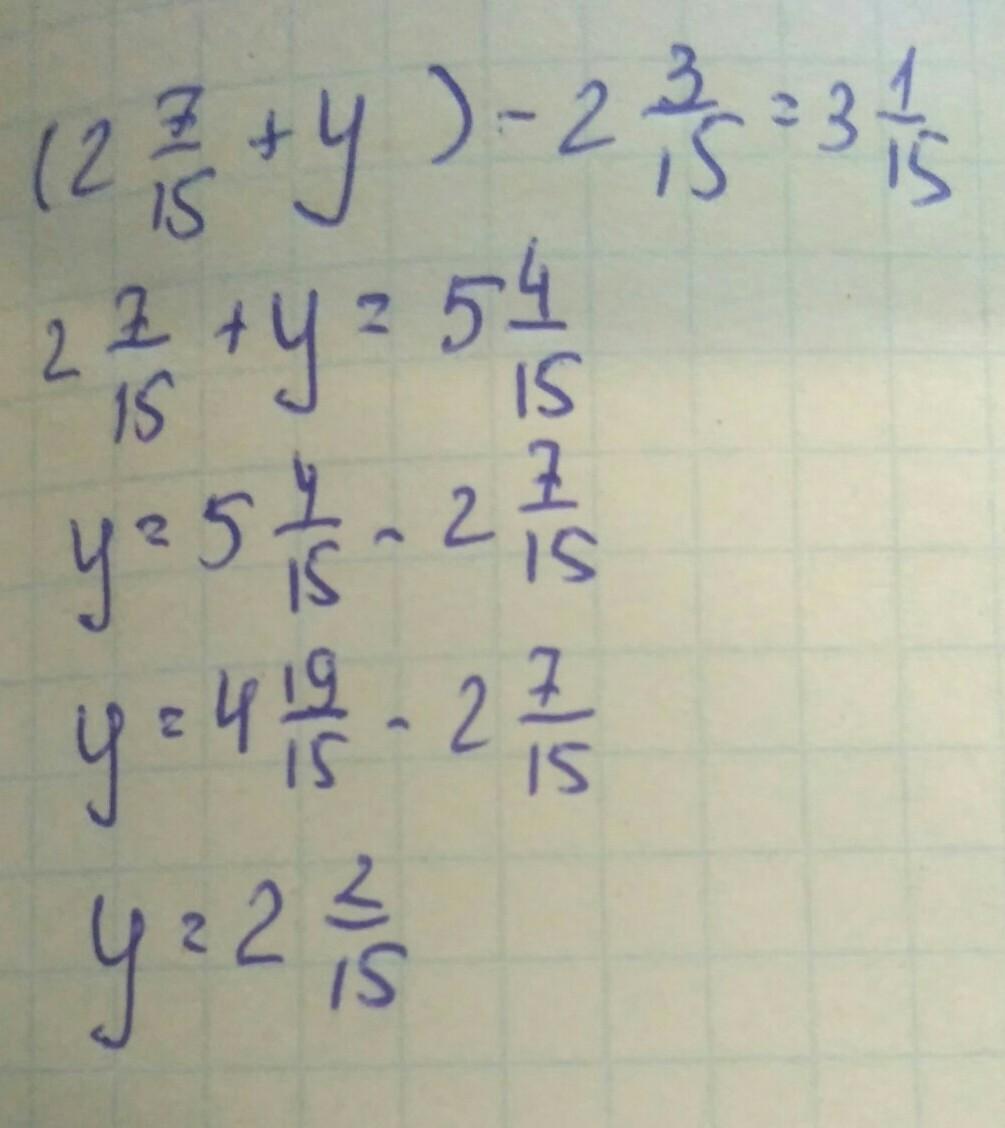 (2 7/15 + y) - 2 3/15 = 3 1/15
2 7/15 + y = 5 4/15
y = 5 4/15 - 2 7/15
y = 4 19/15 - 2 7/15
y = 2 2/15